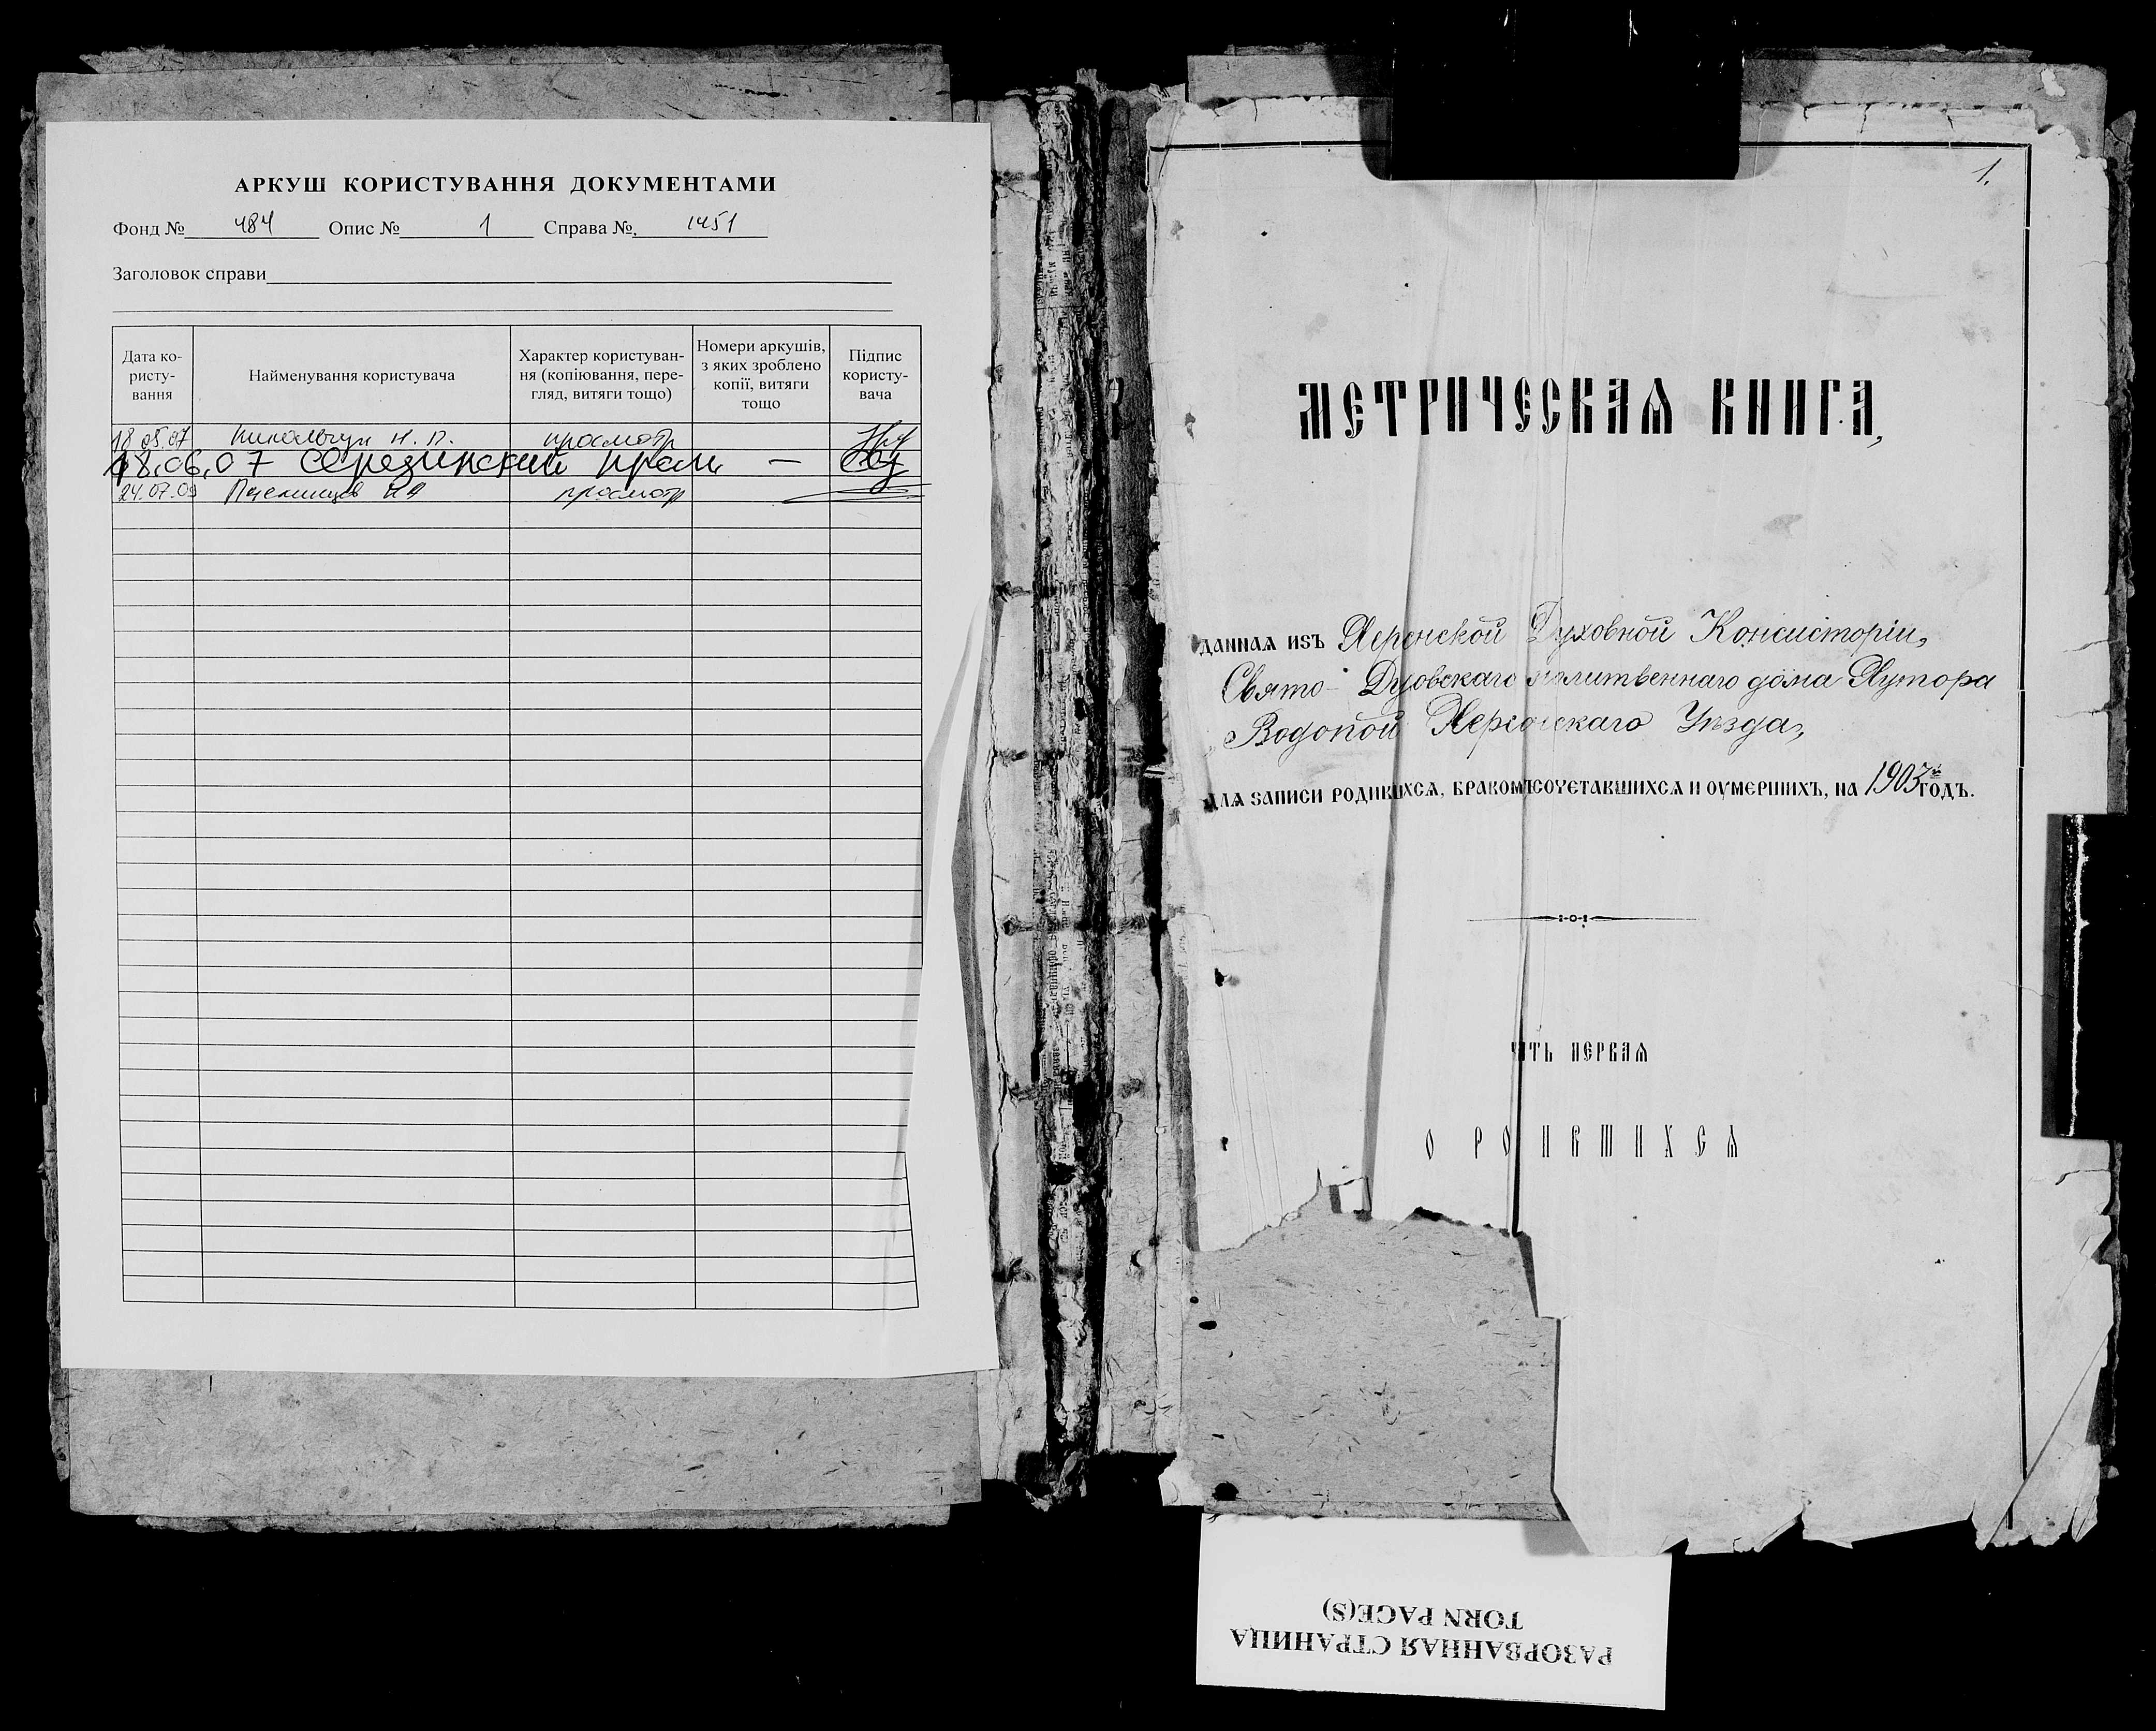 АРКУШ КОРИСТУВАННЯ ДОКУМЕНТАМИ
Фонд № 484 Опис № 1 Справа № 1451
Заголовок справи
Дата ко-
ристу-
вання
Найменування користувача
Характер користуван-
ня (копіювання, пере-
гляд, витяги тощо)
Номери аркушів,
з яких зроблено
копії, витяги
тощо
Підпис
користу-
вача
18.05.07 Н. П. просмотр
18.06.07 Середзинский —
24.07.09 просмотр
1.
МЕТРИЧЕСКАѦ КНИГА,
ДАННАѦ ИЗЪ Херсонской Духовной Консисторіи,
Свято-Духовскаго молитвеннаго дома Хутора
Водопой Херсонскаго Уѣзда,
ДЛѦ ЗАПИСИ РОДИВШИХСѦ, БРАКОМЪ СОЧЕТАВШИХСѦ И ОУМЕРШИХЪ, НА 1903й ГОДЪ.
ТЬ ПЕРВАѦ
О РО ИВШИХСѦ
РАЗОРВАННАЯ СТРАНИЦА
TORN PAGE(S)